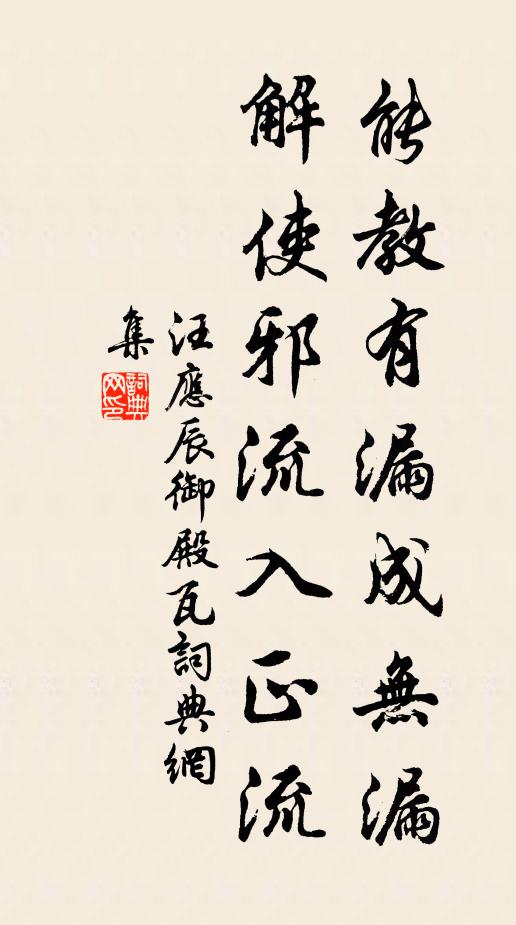 能教有漏成無漏
解使邪流入正流
汪應辰御殿瓦詞典網
集
詞典
网印